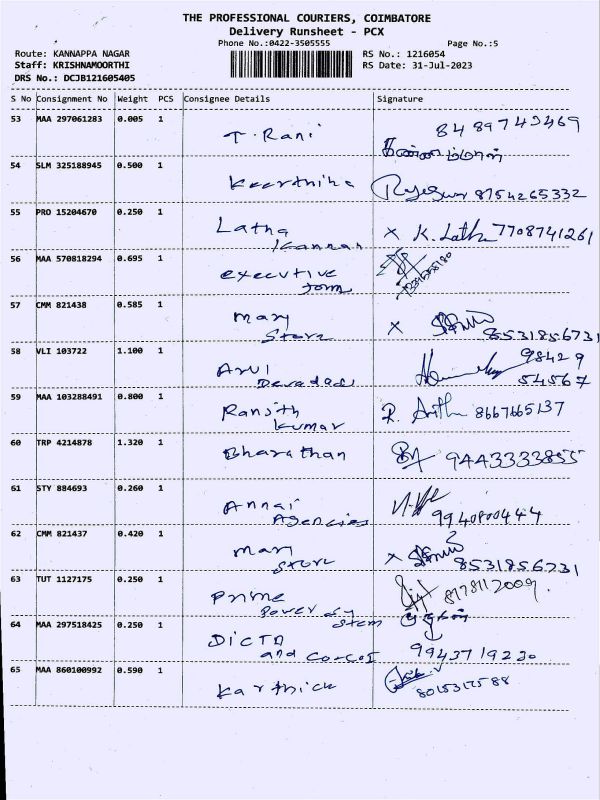 THE PROFESSIONAL COURIERS, COIMBATORE
Delivery Runsheet - PCX
Phone No.:0422-3505555 Page No.:5
Route: KANNAPPA NAGAR RS No.: 1216054
Staff: KRISHNAMOORTHI RS Date: 31-Jul-2023
DRS No.: DCJB121605405
S No Consignment No Weight PCS Consignee Details Signature
53 MAA 297061283 0.005 1
T. Rani 8489743469
54 SLM 325188945 0.500 1
Keerthika 8754265332
55 PRO 15204670 0.250 1
Latha X K. Latha 7708741261
Kannan
56 MAA 570818294 0.695 1
executive
form
57 CMM 821438 0.585 1
Mary X
Store 8531856731
58 VLI 103722 1.100 1
Arul 98429
Devadas 54567
59 MAA 103288491 0.800 1
Ranjith 8667665137
Kumar
60 TRP 4214878 1.320 1
Bharathan 9443333855
61 STY 884693 0.260 1
Annai
Agencies
62 CMM 821437 0.420 1
Mary X
Store 8531856731
63 TUT 1127175 0.250 1
Prime 8178112009.
Power System
64 MAA 297518425 0.250 1
DICTA
and 9943719230
65 MAA 860100992 0.590 1
Karthick